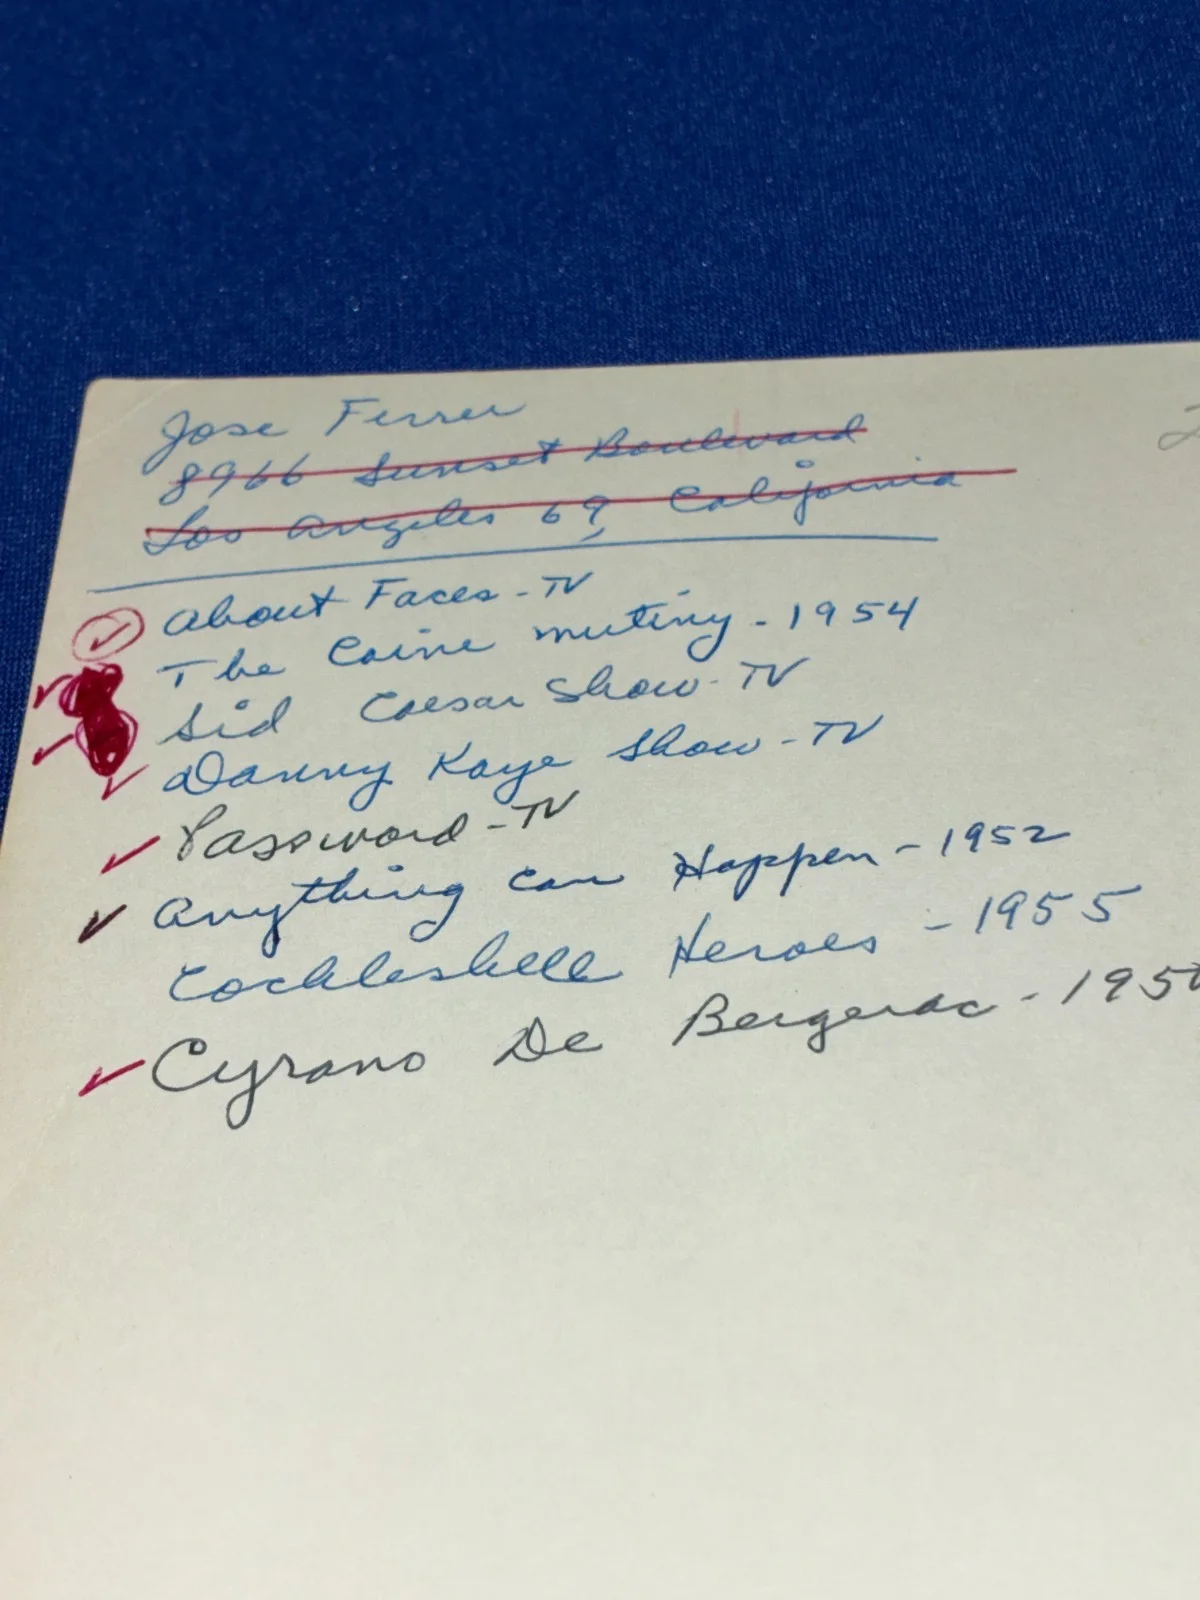 Jose Ferrer
8966 Sunset Boulevard
Los Angeles 69, California
About Faces - TV
The Caine Mutiny - 1954
Sid Caesar Show - TV
Danny Kaye Show - TV
Password - TV
Anything Can Happen - 1952
Cockleshell Heroes - 1955
Cyrano De Bergerac - 1950